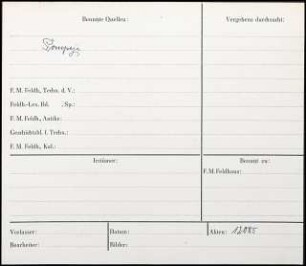 Benutzte Quellen: Vergebens durchsucht:
Pompeji
F. M. Feldh., Techn. d. V.:
Feldh.-Les. Bd. ; Sp.:
F. M. Feldh., Antike:
Geschichtsbl. f. Techn.:
F. M. Feldh., Kul.:
Irrtümer: Benutzt zu:
F.M.Feldhaus:
Verfasser: Datum: Akten:
Bearbeiter: Bilder: